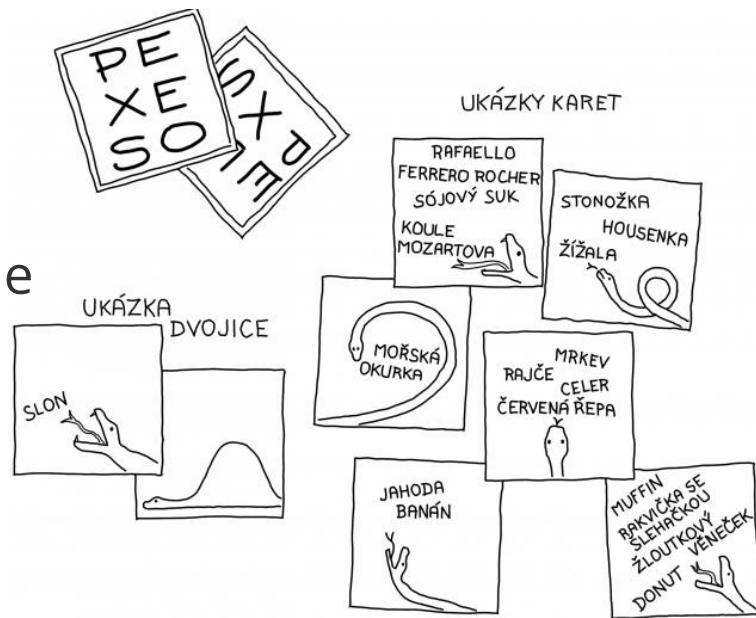 PE
XE
SO
PE
XE
S
UKÁZKY KARET
RAFAELLO
FERRERO ROCHER
SÓJOVÝ SUK
KOULE
MOZARTOVA
STONOŽKA
HOUSENKA
ŽÍŽALA
e
UKÁZKA
DVOJICE
SLON
MOŘSKÁ
OKURKA
MRKEV
RAJČE
CELER
ČERVENÁ ŘEPA
JAHODA
BANÁN
MUFFIN
RAKVIČKA SE
ŠLEHAČKOU
ŽLOUTKOVÝ
VĚNEČEK
DONUT